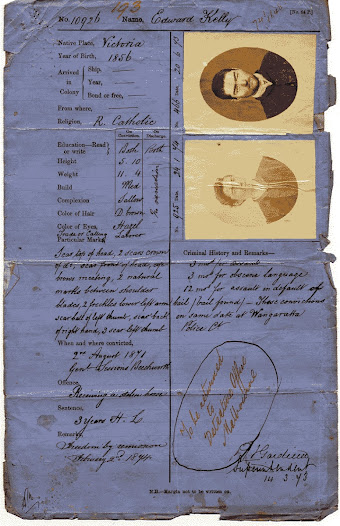 193
No. 10926 Name, Edward Kelly
Native Place, Victoria
Year of Birth, 1856
Arrived in Colony
Ship,
Year,
Bond or free,
From where,
Religion, R. Catholic
On Conviction. On Discharge.
Education—Read or write Both Both
Height 5. 10
Weight 11. 4
Build Med
Complexion Sallow
Color of Hair D. brown
Color of Eyes, Hazel
Trade or Calling Laborer
Particular Marks
Scar top of head, 2 scars crown
of do, scar front of head, eye
brows meeting, 2 natural
marks between shoulder
blades, 2 freckles lower left arm
scar ball of left thumb, scar back
of right hand, 3 scar left thumb
When and where convicted,
2nd August 1871
Genl Sessions Beechworth
Offence,
Receiving a stolen horse
Sentence,
3 Years H. L.
Remarks,
Freedom by remission
February 2nd 1874.
Criminal History and Remarks—
3 mos for assault
3 mos for obscene language
12 mos for assault in default of
bail (bail found) — These convictions
on same date at Wangaratta
Police Ct
To be returned
to
Detective Office
Melbourne
Superintendent
14.3.73
N.B.—Margin not to be written on.